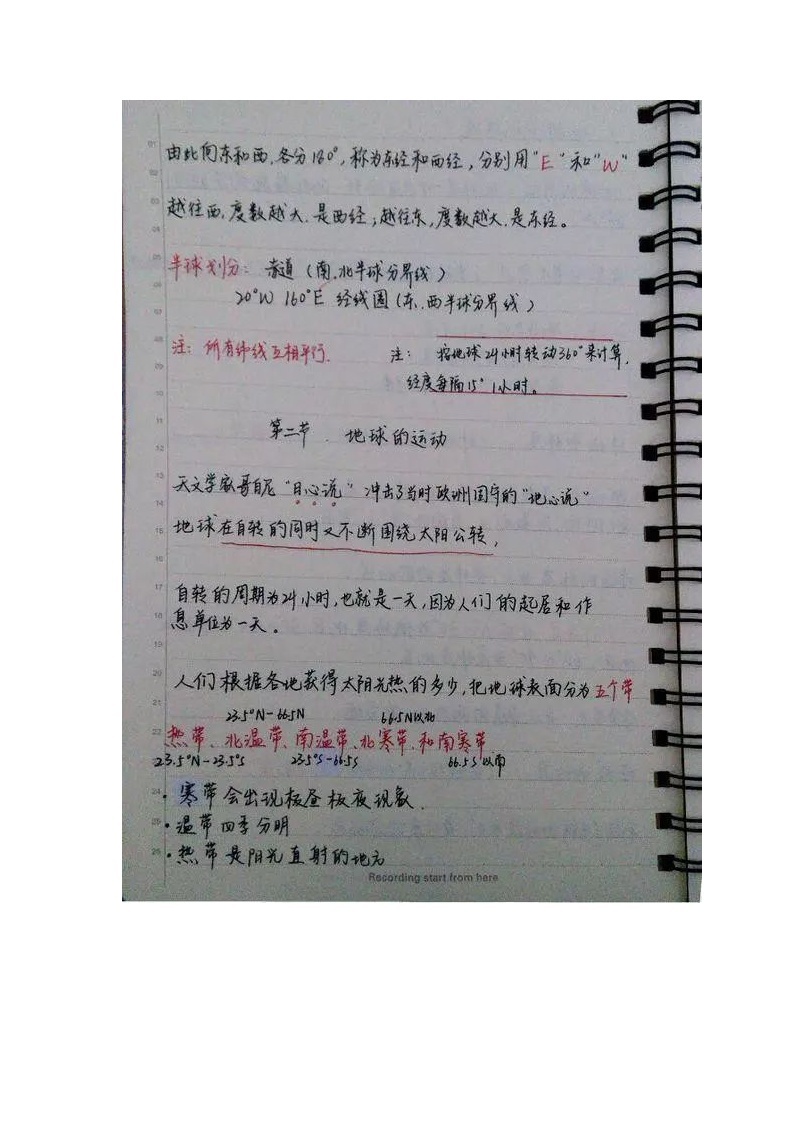 由此向东和西,各分180°,称为东经和西经,分别用"E"和"W"
越往西,度数越大.是西经;越往东,度数越大.是东经。
半球划分: 赤道(南.北半球分界线)
20°W 160°E 经线圈(东.西半球分界线)
注: 所有纬线互相平行. 注: 按地球24小时转动360°来计算,
经度每隔15° 1小时。
第二节. 地球的运动
天文学家哥白尼"日心说"冲击了当时欧洲固守的"地心说"
地球在自转的同时又不断围绕太阳公转,
自转的周期为24小时,也就是一天,因为人们的起居和作
息单位为一天。
人们根据各地获得太阳光热的多少,把地球表面分为五个带
23.5°N-66.5N 66.5N以北
热带、北温带、南温带、北寒带、和南寒带
23.5°N-23.5°S 23.5°S-66.5S 66.5S以南
·寒带会出现极昼极夜现象.
·温带四季分明
·热带是阳光直射的地方
Recording start from here